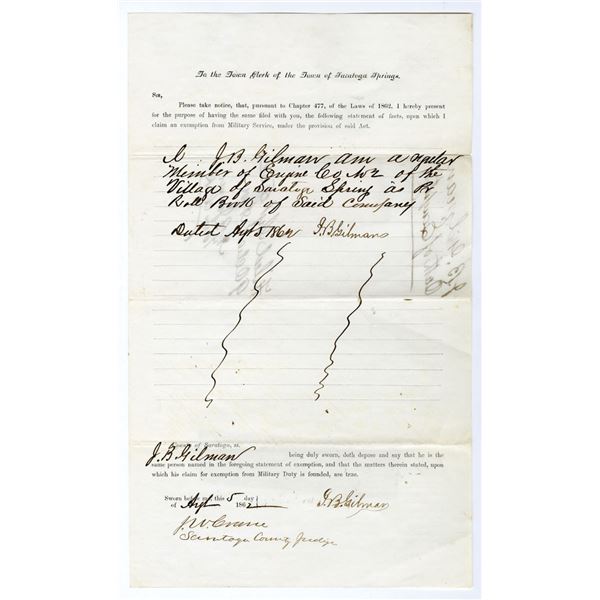 To the Town Clerk of the Town of Saratoga Springs.
Sir,
Please take notice, that, pursuant to Chapter 477, of the Laws of 1862, I hereby present
for the purpose of having the same filed with you, the following statement of facts, upon which I
claim an exemption from Military Service, under the provision of said Act.
I J. B. Gilman am a regular
Member of Engine Co No 2 of the
Village of Saratoga Spring as Pr
Roll Book of Said Company
Dated Agt 5 1862 J. B. Gilman
County of Saratoga, ss.
J. B. Gilman being duly sworn, doth depose and say that he is the
same person named in the foregoing statement of exemption, and that the matters therein stated, upon
which his claim for exemption from Military Duty is founded, are true.
Sworn before me, this 5 day
of Agt 1862 J. B. Gilman
J. W. Crane
Saratoga County Judge